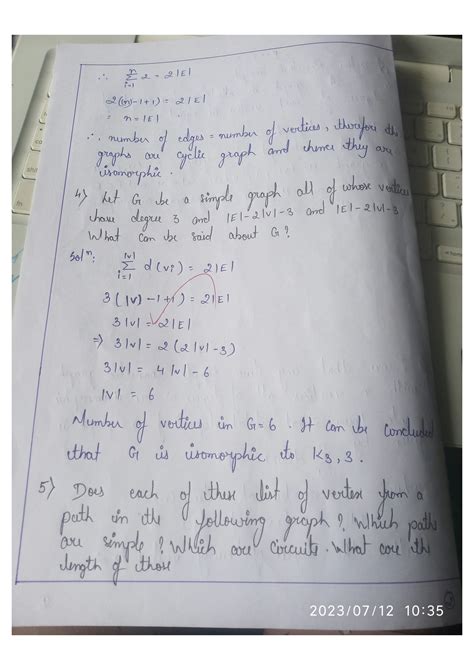 ∴ n∑i=1 2 = 2|E|
2((n)-1+1) = 2|E|
= n=|E|
∴ number of edges = number of vertices, therefore the
graphs are cyclic graph and thence they are
isomorphic.
4) Let G be a simple graph all of whose vertices
have degree 3 and |E|-2|V|-3 and |E|-2|V|-3
What can be said about G?
Solⁿ: |V|∑i=1 d(vi) = 2|E|
3(|V|-1+1) = 2|E|
3|V| = 2|E|
⇒ 3|V| = 2(2|V|-3)
3|V| = 4|V|-6
|V| = 6
Number of vertices in G=6. It can be concluded
that G is isomorphic to K3,3.
5) Does each of these list of vertex from a
path in the following graph? Which paths
are simple? Which are circuits. What are the
length of those
2023/07/12 10:35